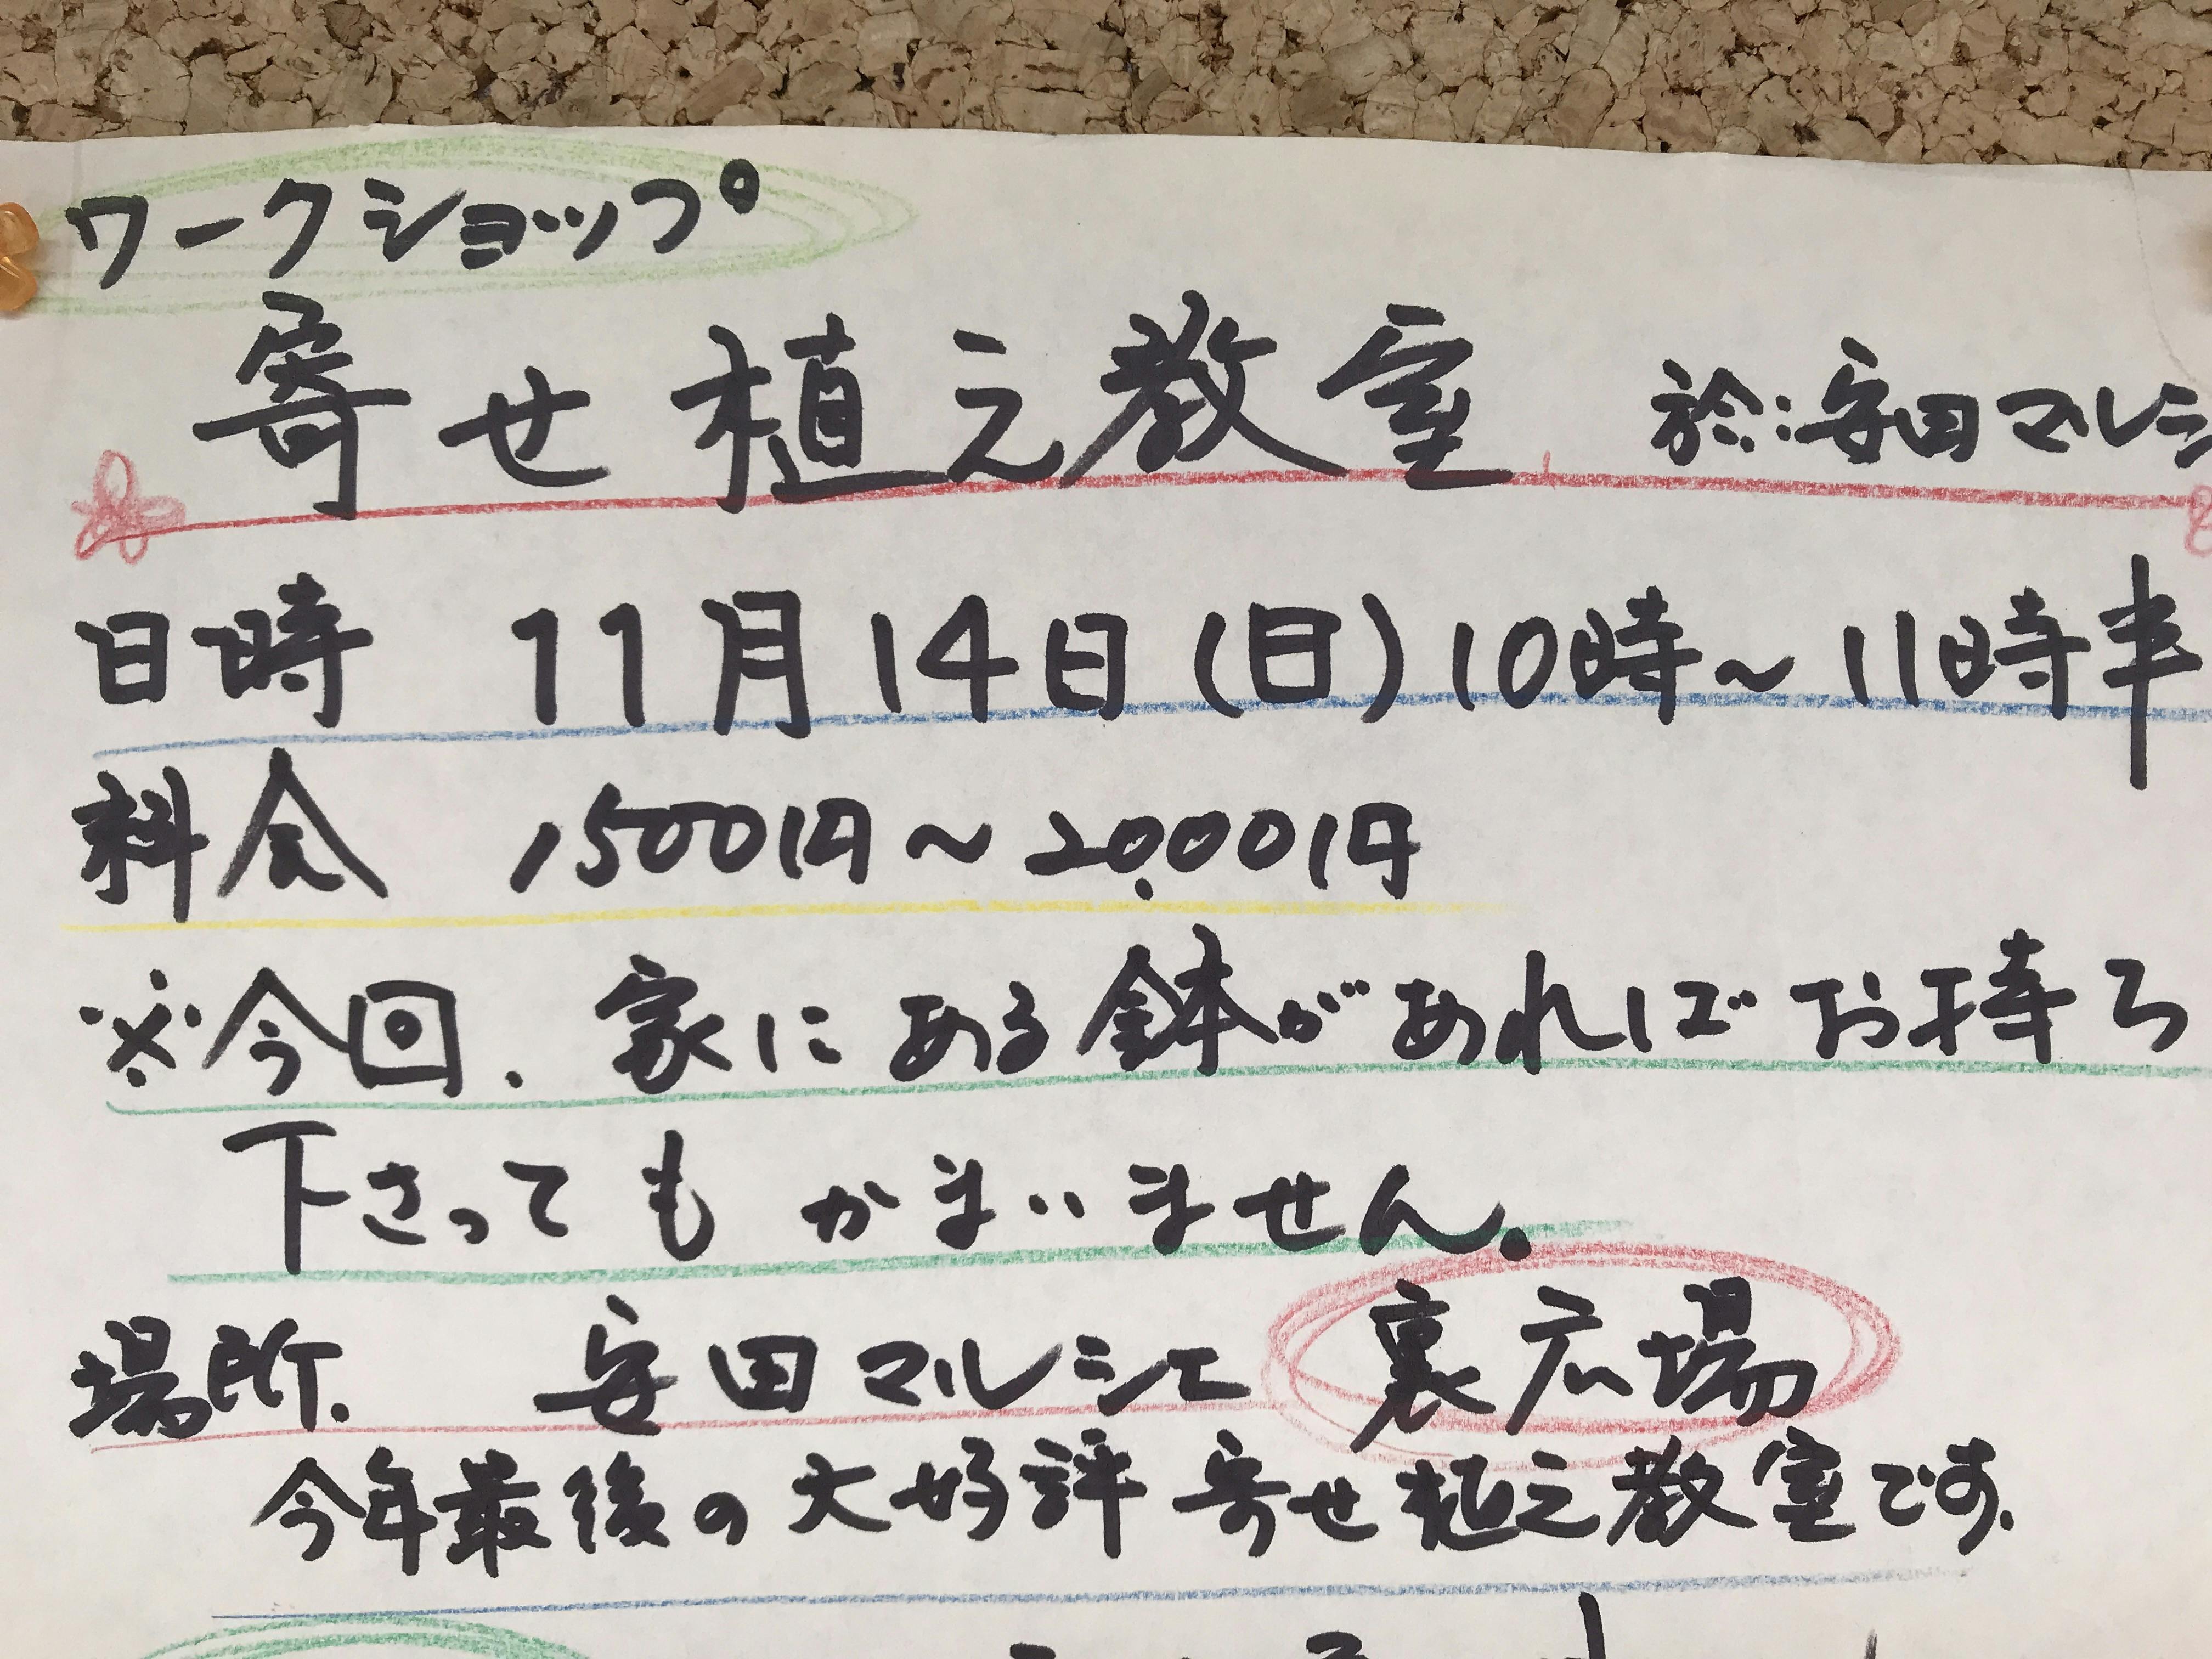 ワークショップ
寄せ植え教室 於:安田マルシ
日時 11月14日(日)10時～11時半
料金 1500円～20.000円
※今回.家にある鉢があればお持ち
下さってもかまいません.
場所. 安田マルシェ 裏広場
今年最後の大好評寄せ植え教室です.